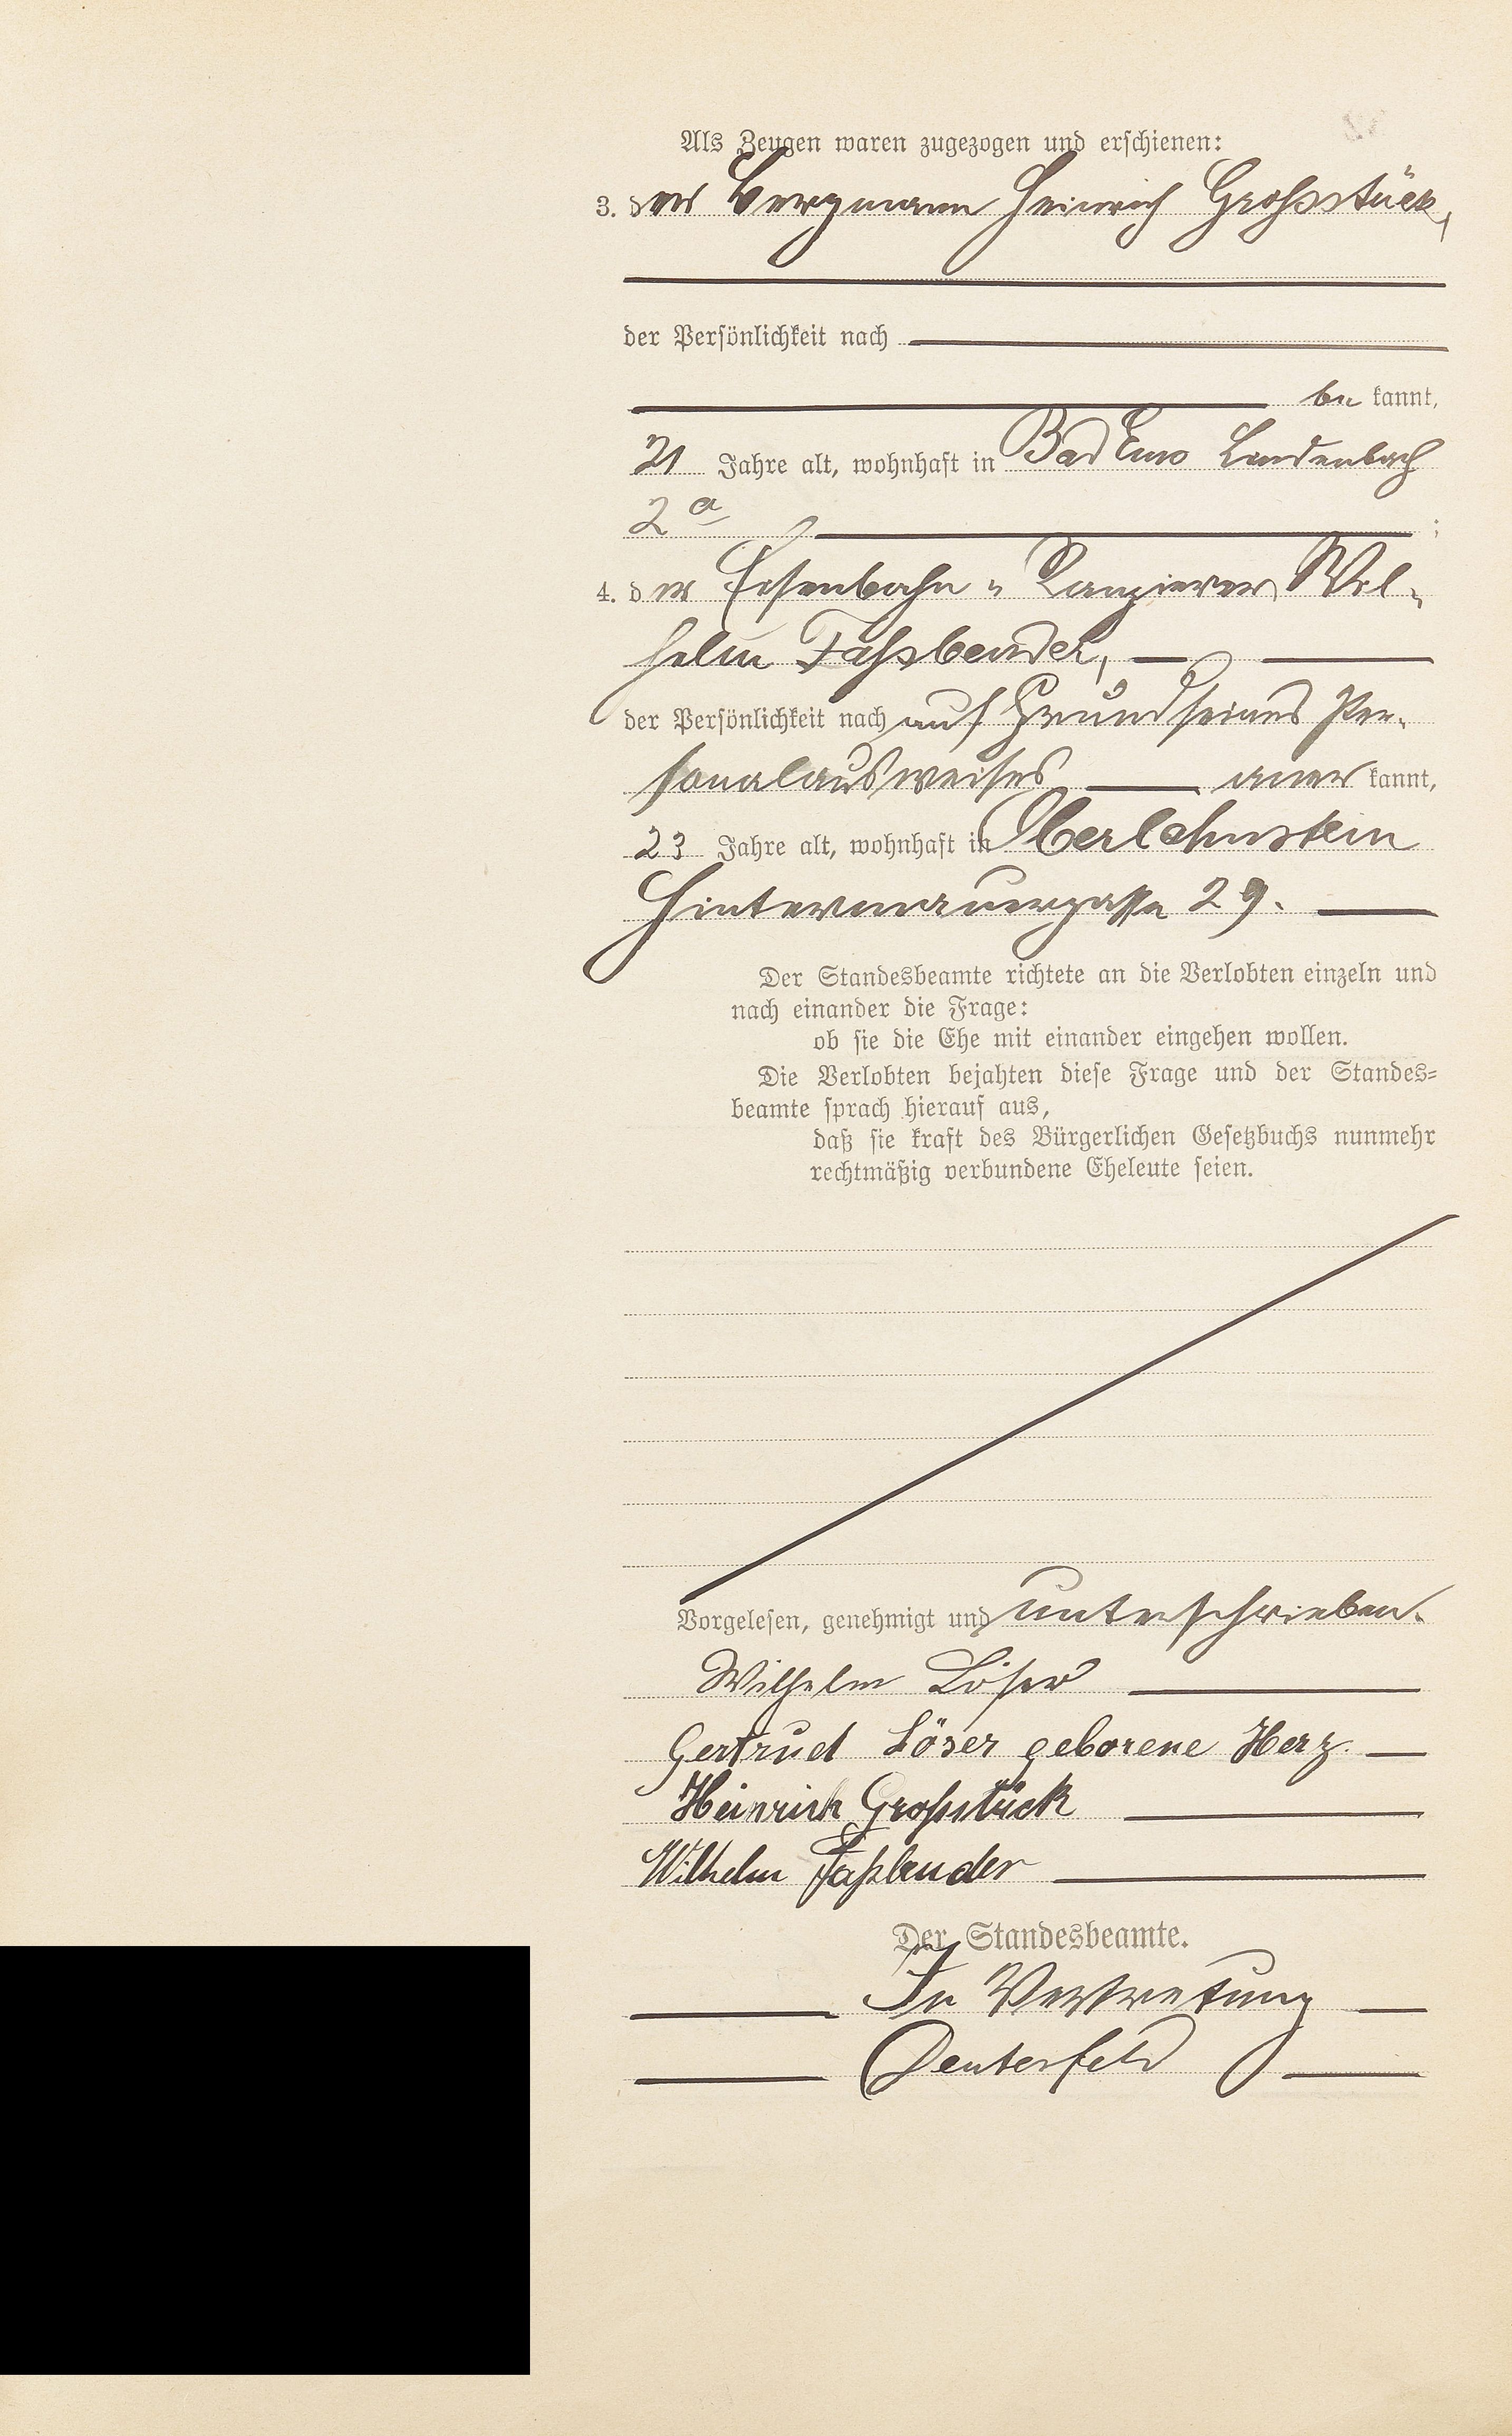 Als Zeugen waren zugezogen und erschienen:
3. der Bergmann Heinrich Großstück,
der Persönlichkeit nach
be kannt,
21 Jahre alt, wohnhaft in Bad Ems
2a ;
4. der Eisenbahn- Rangierer Wil-
helm Fassbender,
der Persönlichkeit nach auf Grund seines Per-
sonalausweises aner kannt,
23 Jahre alt, wohnhaft in Oberlahnstein
Hintermauergasse 29.
Der Standesbeamte richtete an die Verlobten einzeln und
nach einander die Frage:
ob sie die Ehe mit einander eingehen wollen.
Die Verlobten bejahten diese Frage und der Standes-
beamte sprach hierauf aus,
daß sie kraft des Bürgerlichen Gesetzbuchs nunmehr
rechtmäßig verbundene Eheleute seien.
Vorgelesen, genehmigt und unterschrieben.
Wilhelm Löser
Gertrud Löser geborene Herz.
Heinrich Großstück
Wilhelm Faßbender
Der Standesbeamte.
In Vertretung